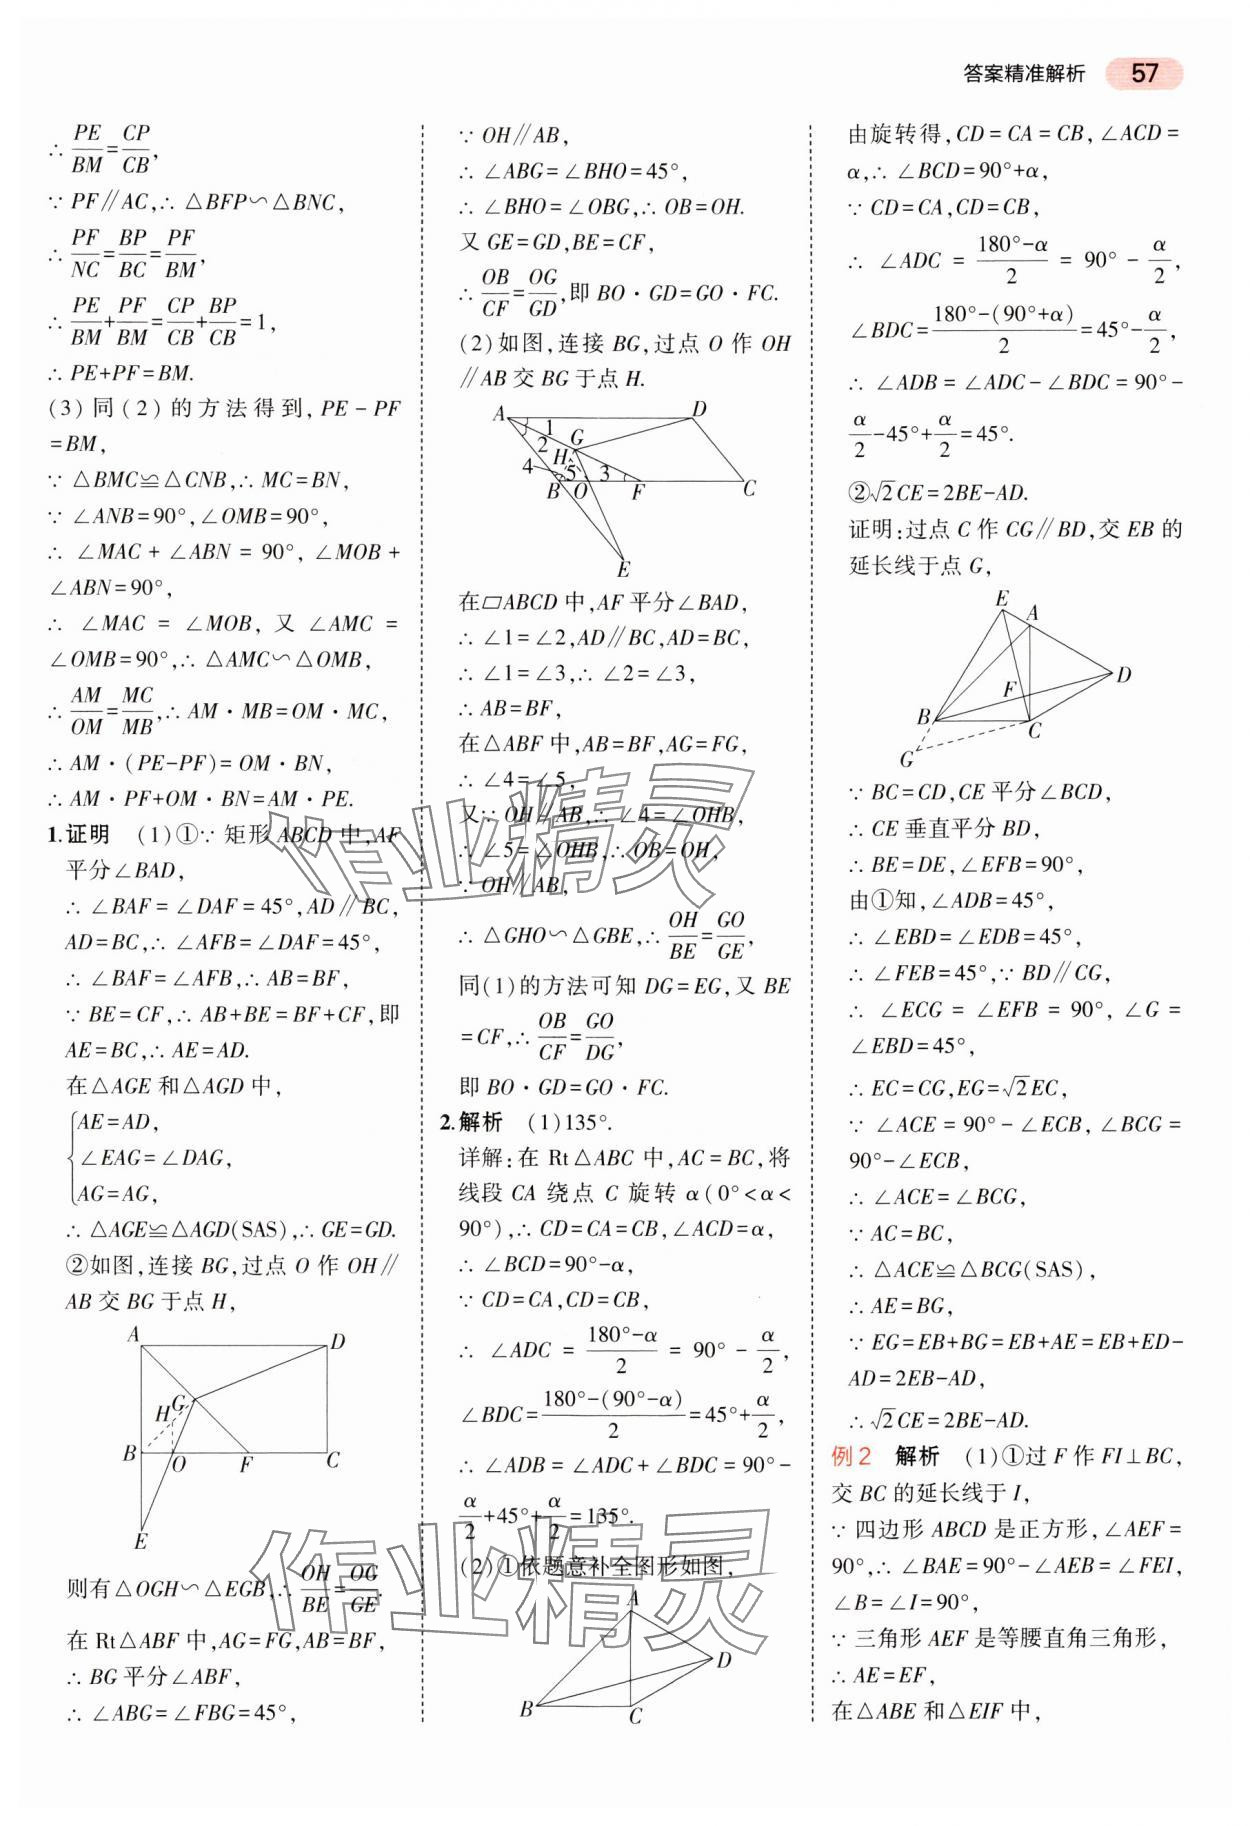 答案精准解析 57
∴ PE/BM=CP/CB,
∵ PF∥AC,∴ △BFP∽△BNC,
∴ PF/NC=BP/BC=PF/BM,
∴ PE/BM+PF/BM=CP/CB+BP/CB=1,
∴ PE+PF=BM.
(3)同(2)的方法得到,PE-PF
=BM,
∵ △BMC≌△CNB,∴ MC=BN,
∵ ∠ANB=90°,∠OMB=90°,
∴ ∠MAC+∠ABN=90°,∠MOB+
∠ABN=90°,
∴ ∠MAC=∠MOB,又∠AMC=
∠OMB=90°,∴ △AMC∽△OMB,
∴ AM/OM=MC/MB,∴ AM·MB=OM·MC,
∴ AM·(PE-PF)=OM·BN,
∴ AM·PF+OM·BN=AM·PE.
1.证明 (1)①∵ 矩形 ABCD 中,AF
平分∠BAD,
∴ ∠BAF=∠DAF=45°,AD∥BC,
AD=BC,∴ ∠AFB=∠DAF=45°,
∴ ∠BAF=∠AFB,∴ AB=BF,
∵ BE=CF,∴ AB+BE=BF+CF,即
AE=BC,∴ AE=AD.
在△AGE 和△AGD 中,
{AE=AD,
∠EAG=∠DAG,
AG=AG,
∴ △AGE≌△AGD(SAS),∴ GE=GD.
②如图,连接 BG,过点 O 作 OH∥
AB 交 BG 于点 H,
A D
G
H
B O F C
E
则有△OGH∽△EGB,∴ OH/BE=OG/GE.
在 Rt△ABF 中,AG=FG,AB=BF,
∴ BG 平分∠ABF,
∴ ∠ABG=∠FBG=45°,
∵ OH∥AB,
∴ ∠ABG=∠BHO=45°,
∴ ∠BHO=∠OBG,∴ OB=OH.
又 GE=GD,BE=CF,
∴ OB/CF=OG/GD,即 BO·GD=GO·FC.
(2)如图,连接 BG,过点 O 作 OH
∥AB 交 BG 于点 H.
A D
1
2 G
H
4 5 3
B O F C
E
在▱ABCD 中,AF 平分∠BAD,
∴ ∠1=∠2,AD∥BC,AD=BC,
∴ ∠1=∠3,∴ ∠2=∠3,
∴ AB=BF,
在△ABF 中,AB=BF,AG=FG,
∴ ∠4=∠5,
又∵ OH∥AB,∴ ∠4=∠OHB,
∴ ∠5=∠OHB,∴ OB=OH,
∵ OH∥AB,
∴ △GHO∽△GBE,∴ OH/BE=GO/GE,
同(1)的方法可知 DG=EG,又 BE
=CF,∴ OB/CF=GO/DG,
即 BO·GD=GO·FC.
2.解析 (1)135°.
详解:在 Rt△ABC 中,AC=BC,将
线段 CA 绕点 C 旋转 α(0°<α<
90°),∴ CD=CA=CB,∠ACD=α,
∴ ∠BCD=90°-α,
∵ CD=CA,CD=CB,
∴ ∠ADC=(180°-α)/2=90°-α/2,
∠BDC=(180°-(90°-α))/2=45°+α/2,
∴ ∠ADB=∠ADC+∠BDC=90°-
α/2+45°+α/2=135°.
(2)①依题意补全图形如图,
A
D
B C
由旋转得,CD=CA=CB,∠ACD=
α,∴ ∠BCD=90°+α,
∵ CD=CA,CD=CB,
∴ ∠ADC=(180°-α)/2=90°-α/2,
∠BDC=(180°-(90°+α))/2=45°-α/2,
∴ ∠ADB=∠ADC-∠BDC=90°-
α/2-45°+α/2=45°.
②√2CE=2BE-AD.
证明:过点 C 作 CG∥BD,交 EB 的
延长线于点 G,
E A
D
F
B C
G
∵ BC=CD,CE 平分∠BCD,
∴ CE 垂直平分 BD,
∴ BE=DE,∠EFB=90°,
由①知,∠ADB=45°,
∴ ∠EBD=∠EDB=45°,
∴ ∠FEB=45°,∵ BD∥CG,
∴ ∠ECG=∠EFB=90°,∠G=
∠EBD=45°,
∴ EC=CG,EG=√2EC,
∵ ∠ACE=90°-∠ECB,∠BCG=
90°-∠ECB,
∴ ∠ACE=∠BCG,
∵ AC=BC,
∴ △ACE≌△BCG(SAS),
∴ AE=BG,
∵ EG=EB+BG=EB+AE=EB+ED-
AD=2EB-AD,
∴ √2CE=2BE-AD.
例2 解析 (1)①过 F 作 FI⊥BC,
交 BC 的延长线于 I,
∵ 四边形 ABCD 是正方形,∠AEF=
90°,∴ ∠BAE=90°-∠AEB=∠FEI,
∠B=∠I=90°,
∵ 三角形 AEF 是等腰直角三角形,
∴ AE=EF,
在△ABE 和△EIF 中,
作业精灵
作业精灵